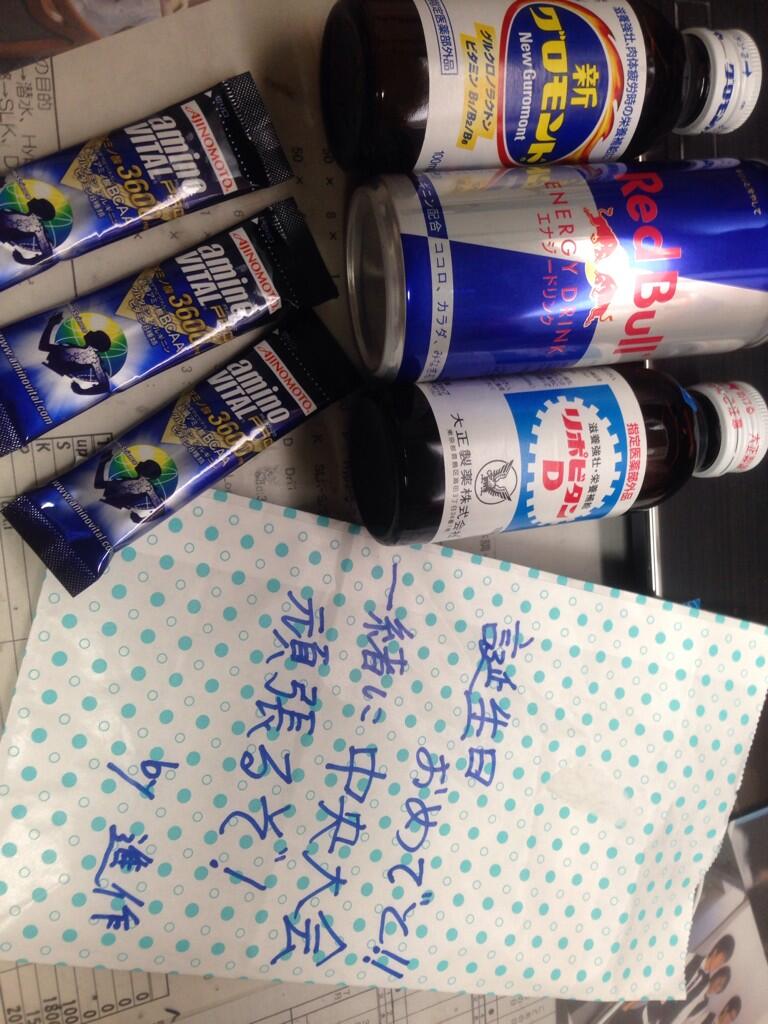 滋養強壮、肉体疲労時の栄養補給
新
グロモント
New Guromont
グルクロノラクトン
ビタミンB1/B2/B6
指定医薬部外品
100
Red Bull
ENERGY DRINK
エナジードリンク
ココロ、カラダ、
指定医薬部外品
滋養強壮・栄養補給
リポビタン
D
大正製薬株式会社
AJINOMOTO
amino
VITAL
PRO
3600
www.aminovital.com
AJINOMOTO
amino
VITAL
PRO
3600
BCAA
www.aminovital.com
AJINOMOTO
amino
VITAL
PRO
3600
BCAA
誕生日
おめでとう!!
一緒に中央大会
頑張るぞ!
by 進作